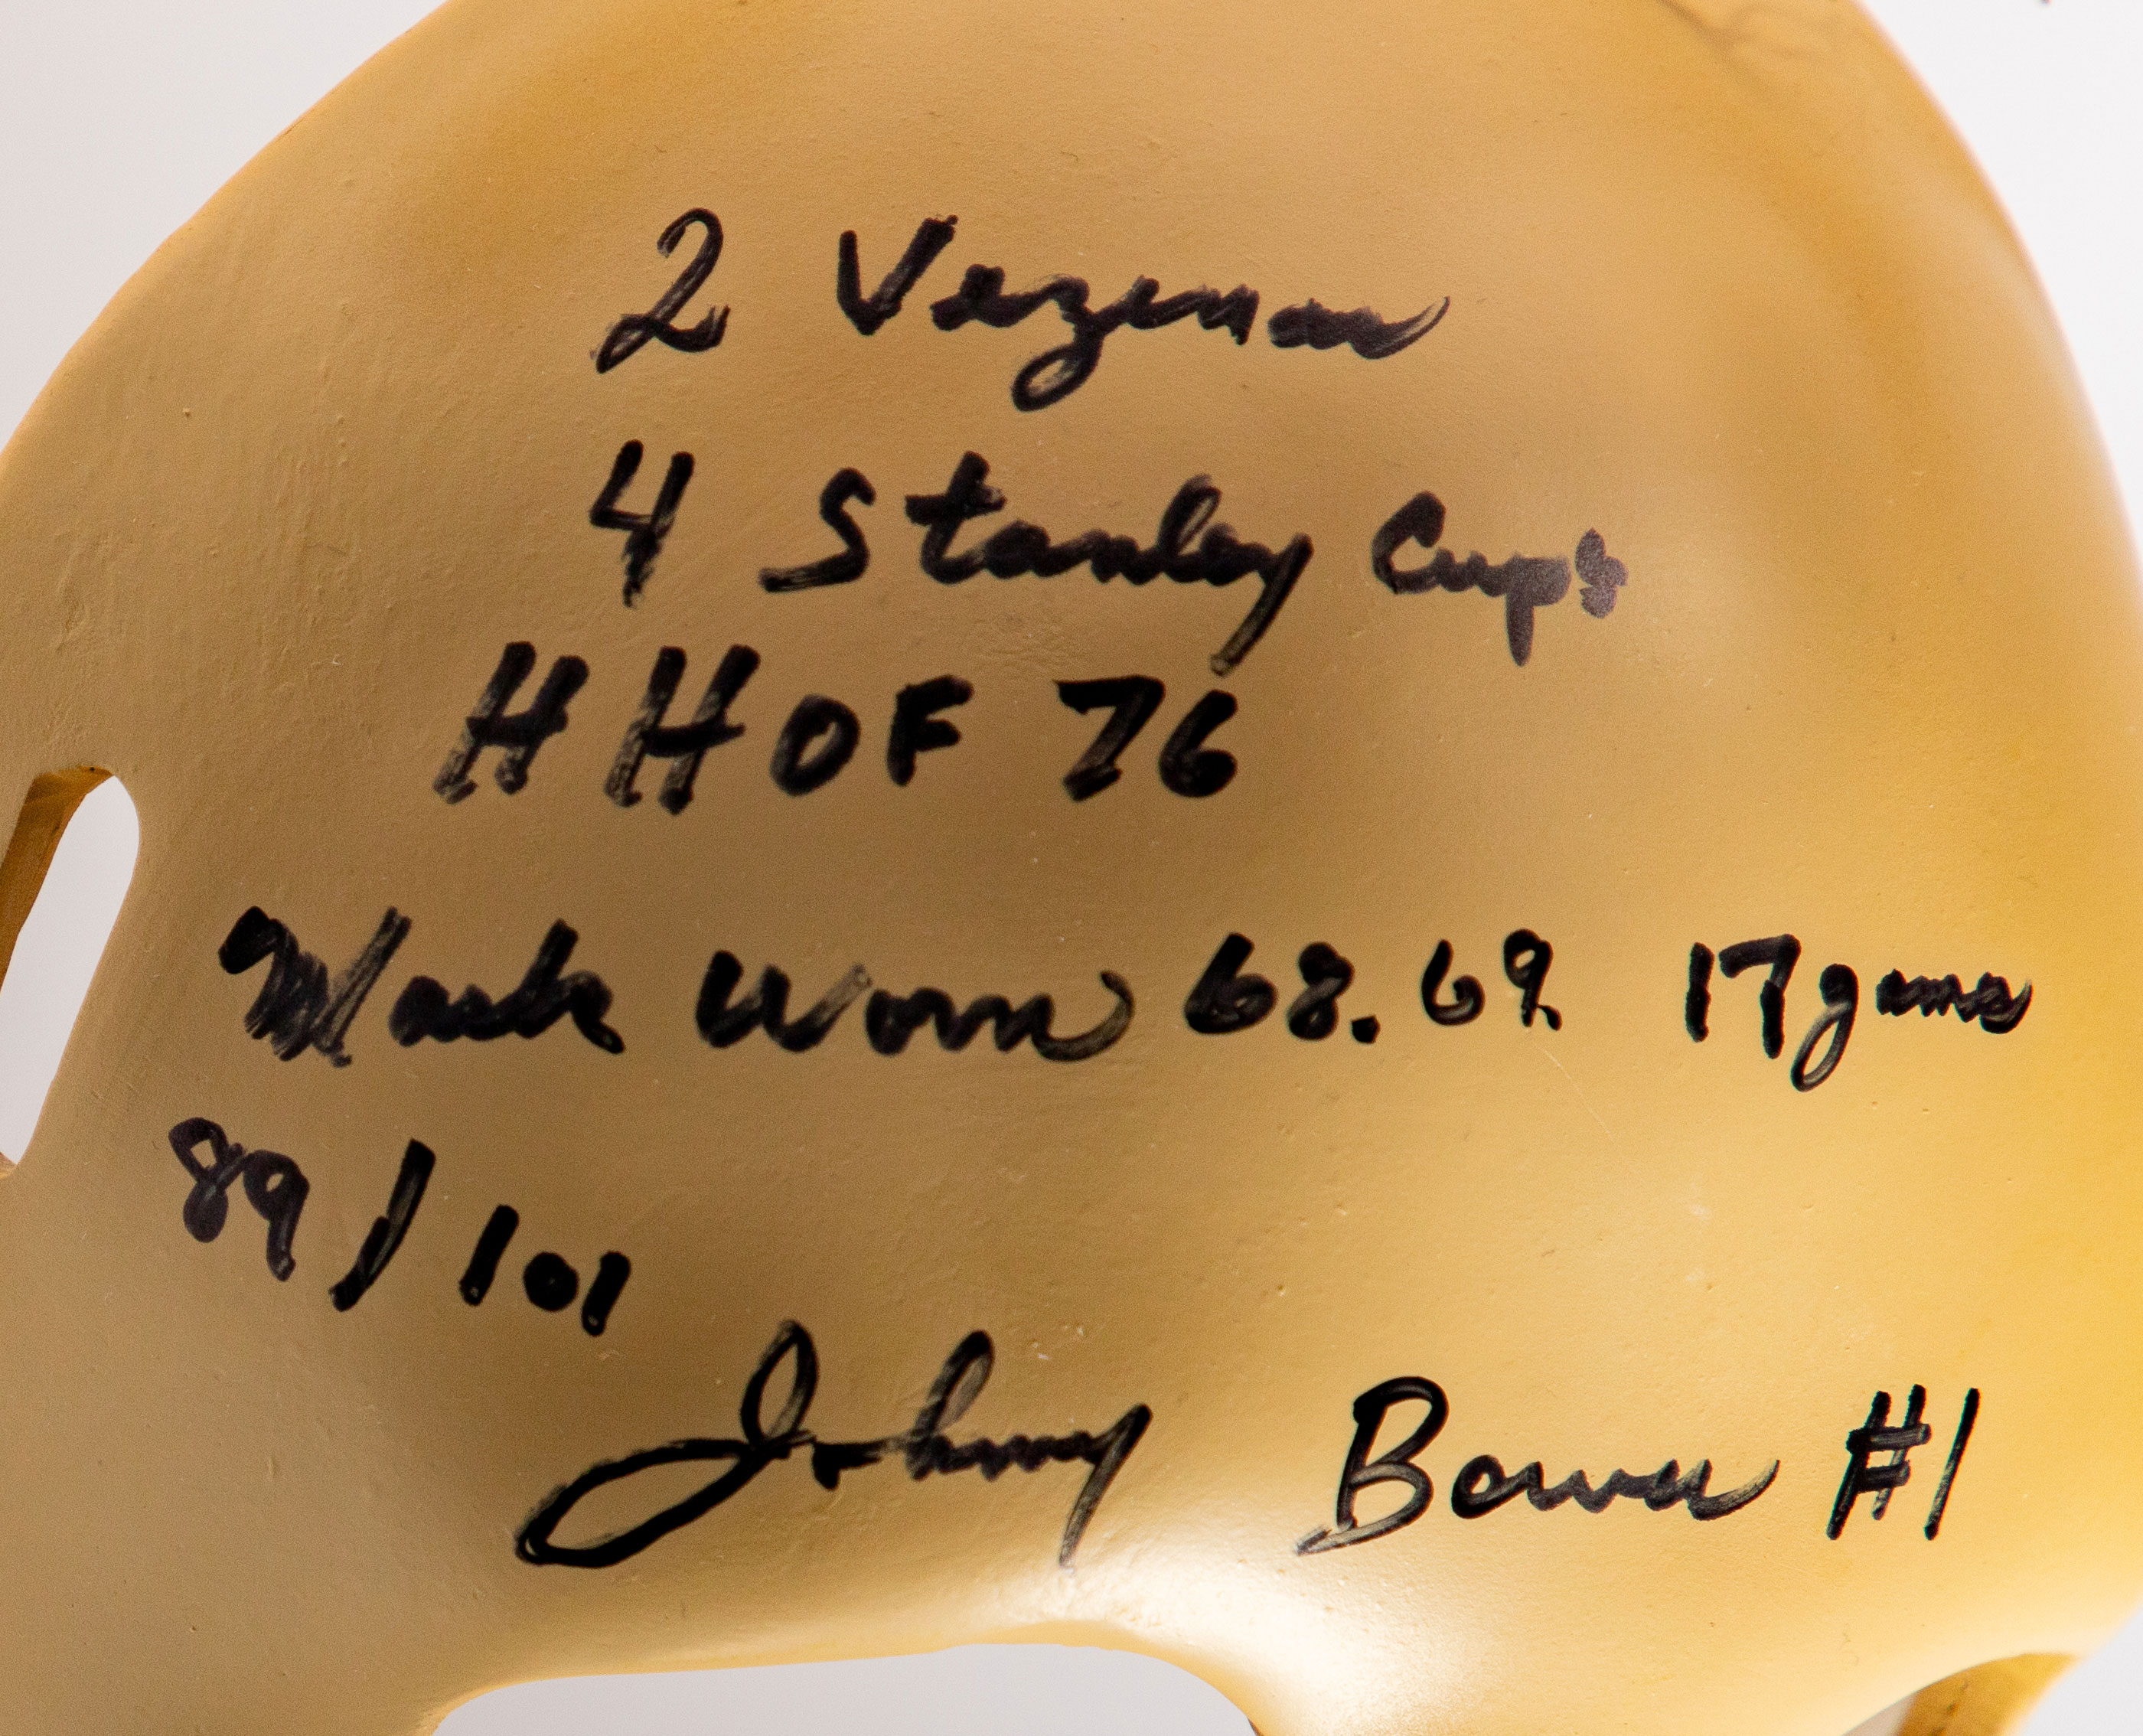 2 Vezina
4 Stanley Cups
HHOF 76
Mask Worn 68.69 17 games
89/101
Johnny Bower #1